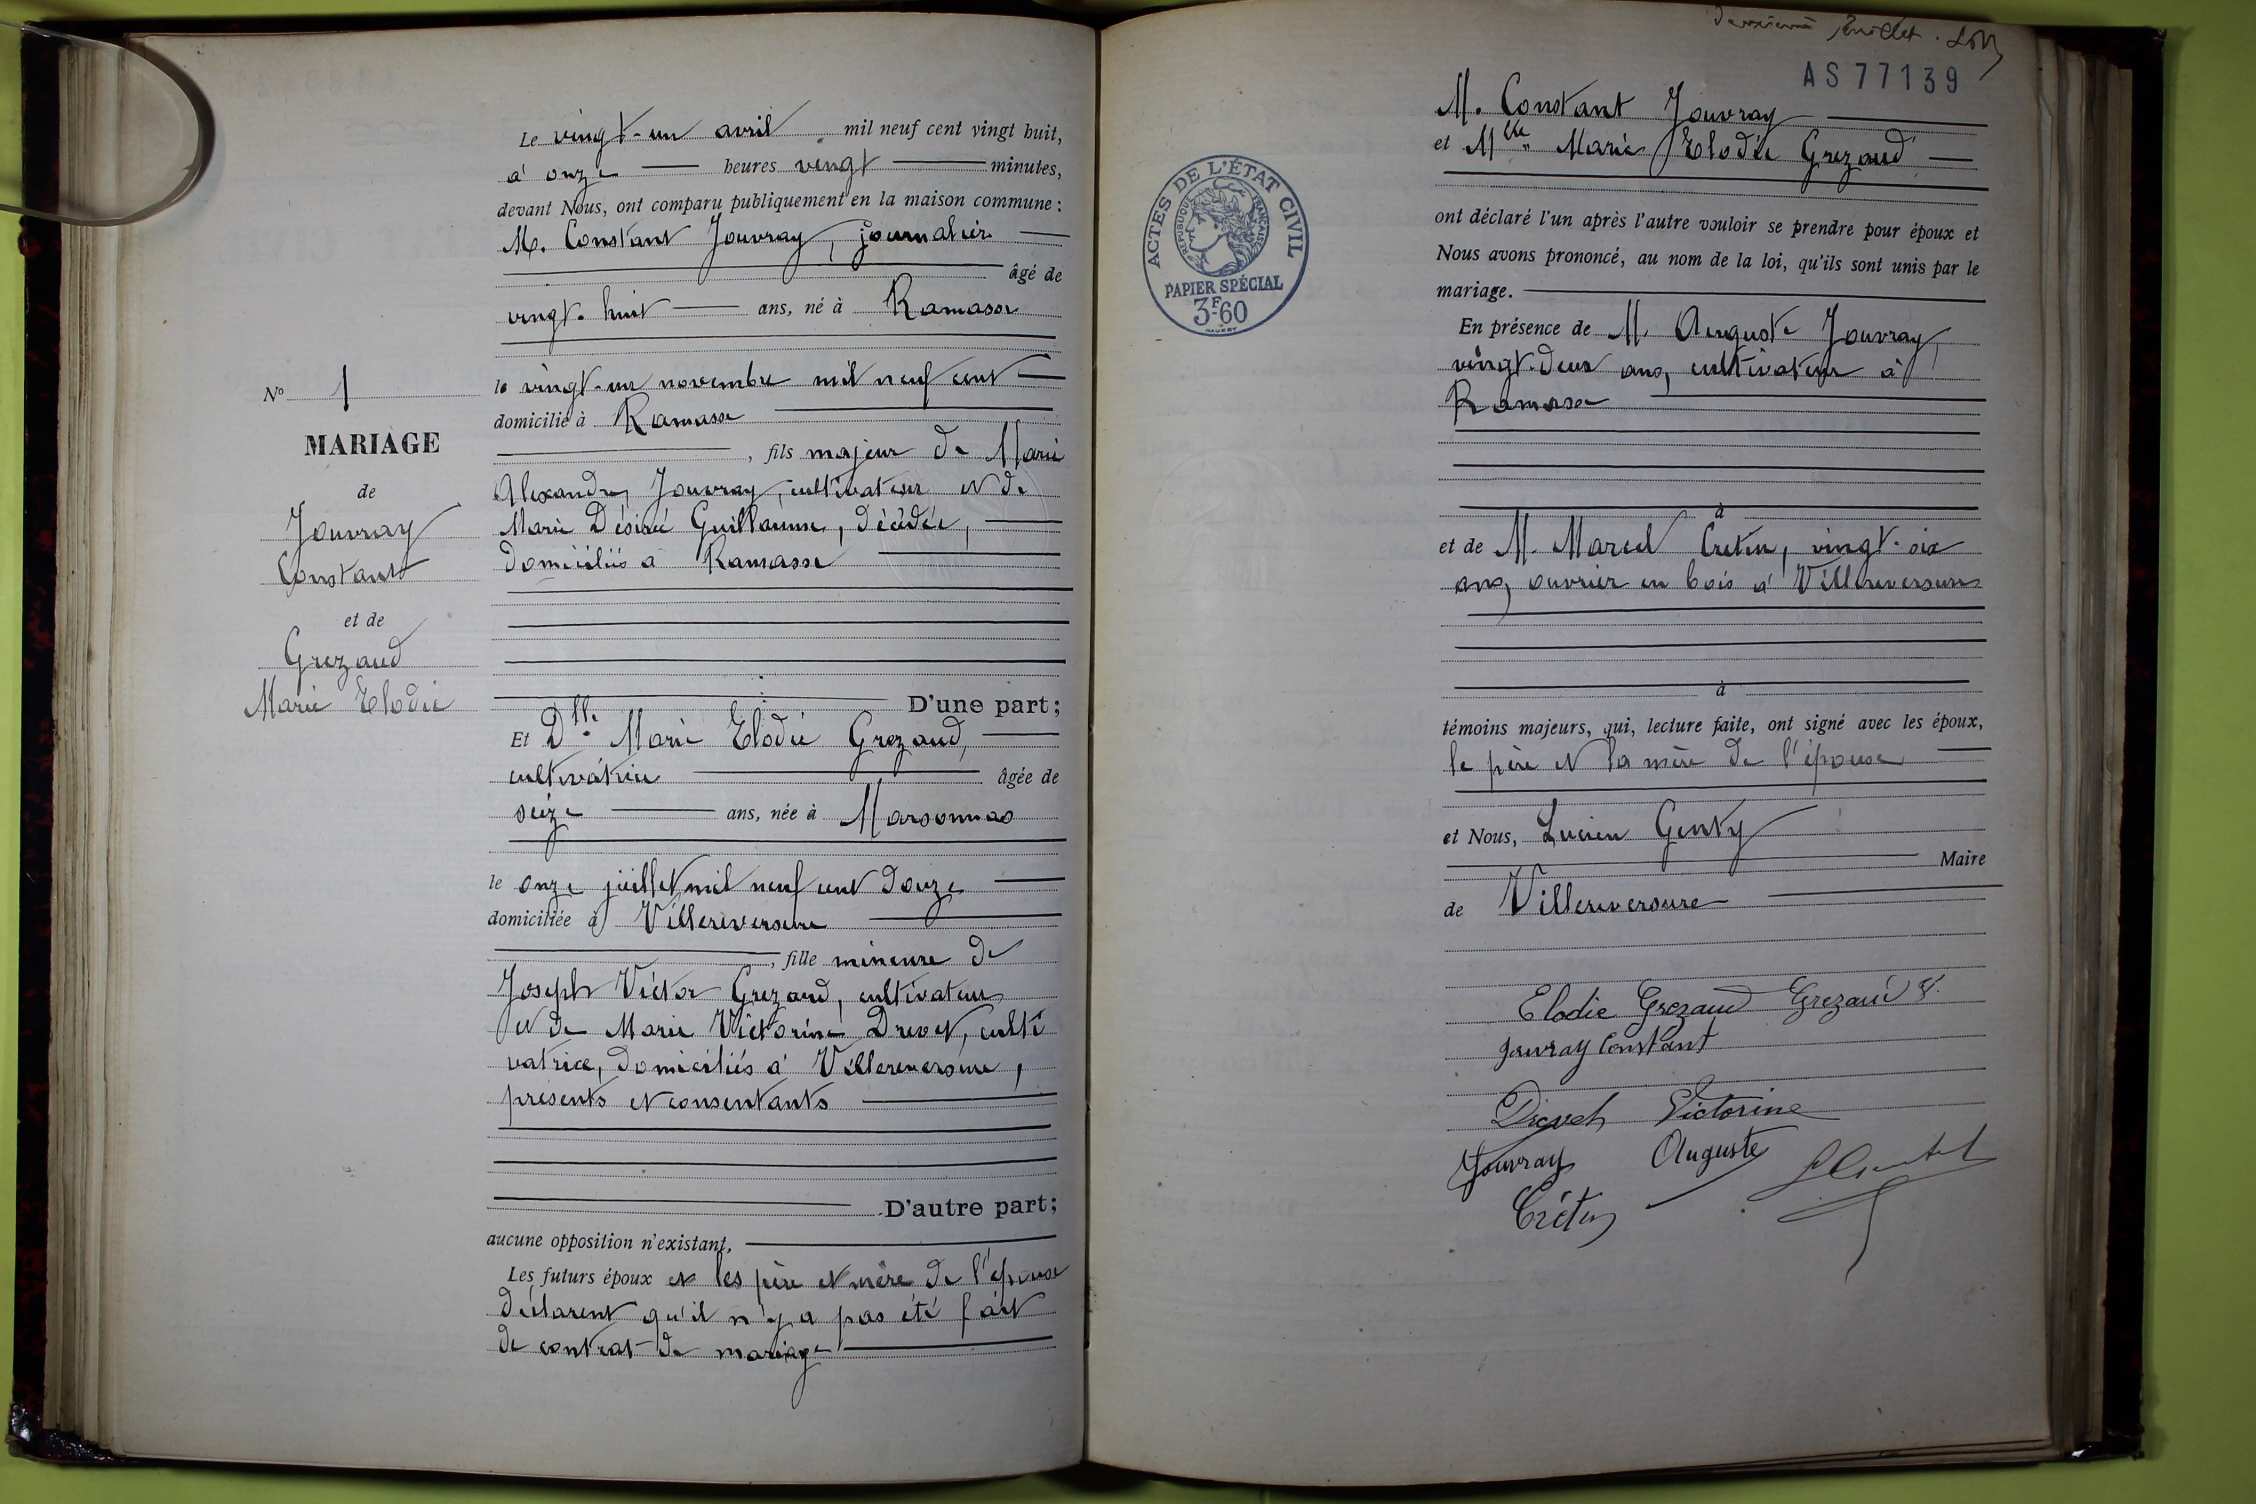 Le vingt-un avril mil neuf cent vingt huit,
à onze heures vingt minutes,
devant Nous, ont comparu publiquement en la maison commune :
M. Constant Jouvray, journalier
âgé de
vingt-huit ans, né à Ramasse
le vingt-un novembre mil neuf cent
domicilié à Ramasse
, fils majeur de Marie
Alexandre Jouvray, cultivateur et de
Marie Désirée Guillaume, décédée,
domiciliés à Ramasse
D'une part;
Et Dlle Marie Elodie Grezaud,
cultivatrice âgée de
seize ans, née à Marsonnas
le onze juillet mil neuf cent douze
domiciliée à Villereversure
, fille mineure de
Joseph Victor Grezaud, cultivateur
et de Marie Victorine Drevet, culti
vatrice, domiciliés à Villereversure,
présents et consentants
D'autre part;
aucune opposition n'existant,
Les futurs époux et les père et mère de l'épouse
déclarent qu'il n'y a pas été fait
de contrat de mariage
No 1
MARIAGE
de
Jouvray
Constant
et de
Grezaud
Marie Elodie
feuillet.
AS 77139
ACTES DE L'ÉTAT CIVIL
RÉPUBLIQUE FRANÇAISE
PAPIER SPÉCIAL
3F60
M. Constant Jouvray
et Mlle Marie Elodie Grezaud
ont déclaré l'un après l'autre vouloir se prendre pour époux et
Nous avons prononcé, au nom de la loi, qu'ils sont unis par le
mariage.
En présence de M. Auguste Jouvray,
vingt-deux ans, cultivateur à
Ramasse
à
et de M. Marcel Cretin, vingt-six
ans, ouvrier en bois à Villereversure
à
témoins majeurs, qui, lecture faite, ont signé avec les époux,
le père et la mère de l'épouse
et Nous, Lucien Genty
Maire
de Villereversure
Elodie Grezaud Grezaud V.
Jouvray Constant
Drevet Victorine
Jouvray Auguste
Crétin